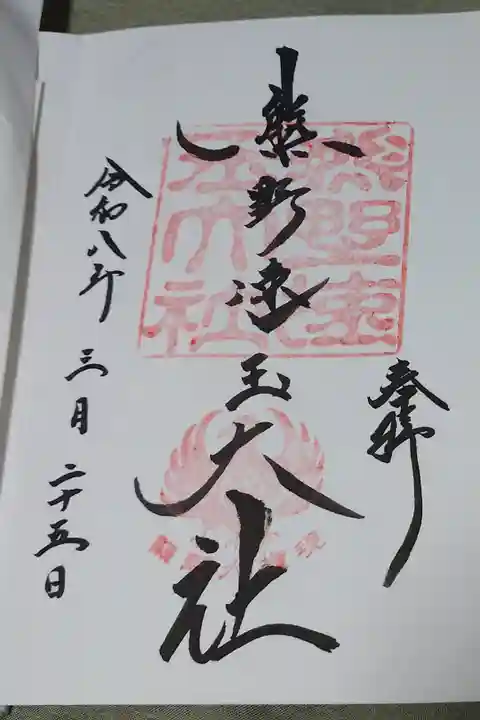 奉拝
熊野速玉大社
令和八年
三月
二十五日
熊野速
玉大社